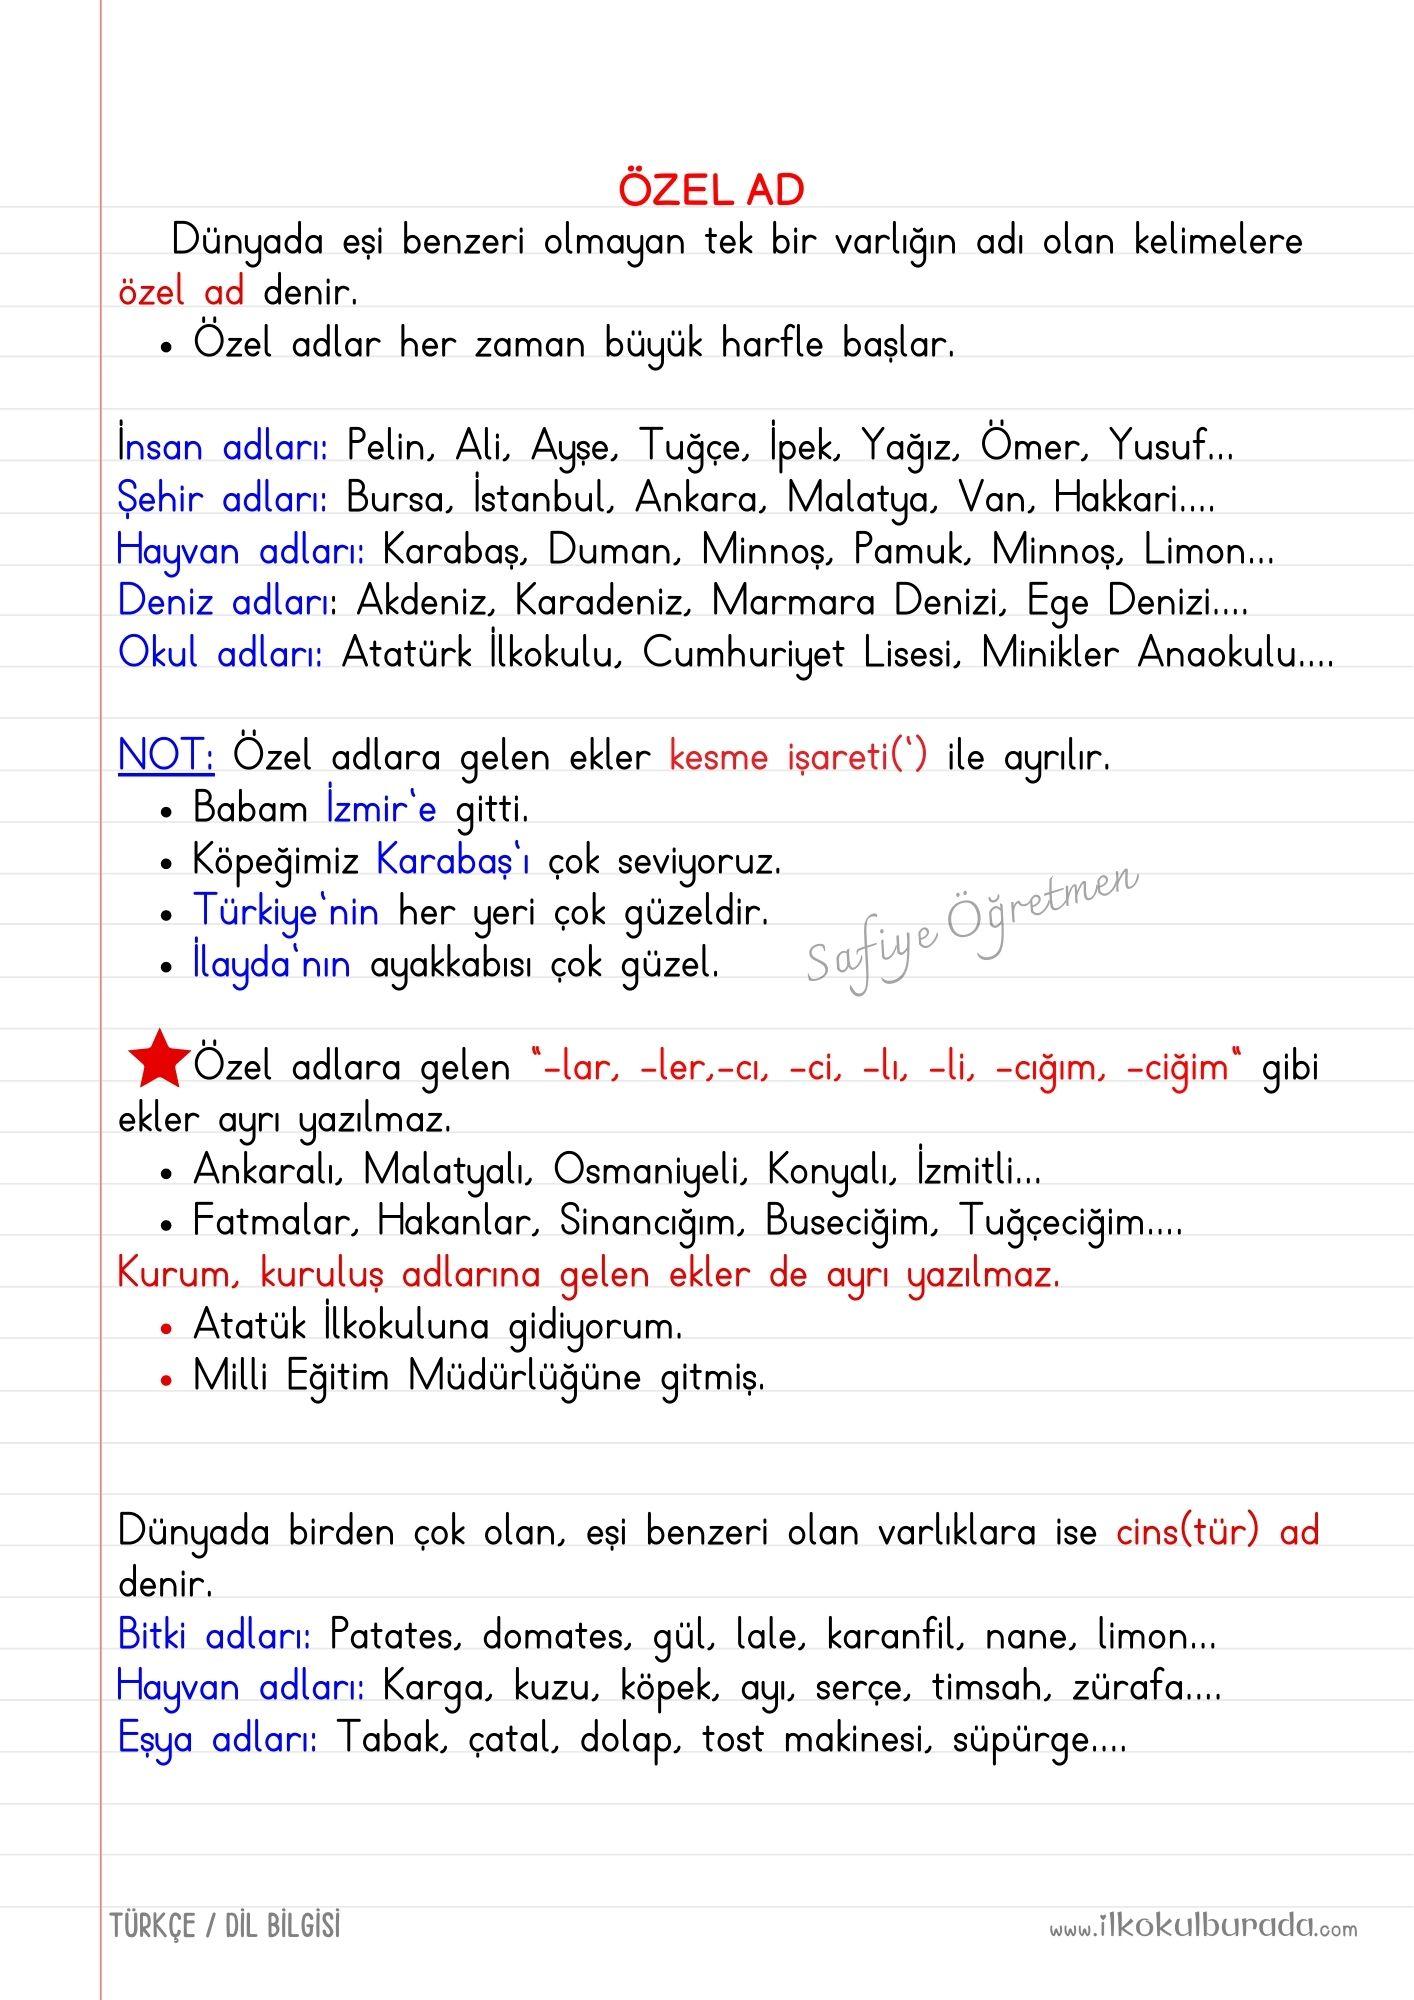 ÖZEL AD
Dünyada eşi benzeri olmayan tek bir varlığın adı olan kelimelere
özel ad denir.
• Özel adlar her zaman büyük harfle başlar.
İnsan adları: Pelin, Ali, Ayşe, Tuğçe, İpek, Yağız, Ömer, Yusuf...
Şehir adları: Bursa, İstanbul, Ankara, Malatya, Van, Hakkari....
Hayvan adları: Karabaş, Duman, Minnoş, Pamuk, Minnoş, Limon...
Deniz adları: Akdeniz, Karadeniz, Marmara Denizi, Ege Denizi....
Okul adları: Atatürk İlkokulu, Cumhuriyet Lisesi, Minikler Anaokulu....
NOT: Özel adlara gelen ekler kesme işareti(‘) ile ayrılır.
• Babam İzmir‘e gitti.
• Köpeğimiz Karabaş‘ı çok seviyoruz.
• Türkiye‘nin her yeri çok güzeldir.
• İlayda‘nın ayakkabısı çok güzel.
Safiye Öğretmen
Özel adlara gelen “-lar, -ler,-cı, -ci, -lı, -li, -cığım, -ciğim“ gibi
ekler ayrı yazılmaz.
• Ankaralı, Malatyalı, Osmaniyeli, Konyalı, İzmitli...
• Fatmalar, Hakanlar, Sinancığım, Buseciğim, Tuğçeciğim....
Kurum, kuruluş adlarına gelen ekler de ayrı yazılmaz.
• Atatük İlkokuluna gidiyorum.
• Milli Eğitim Müdürlüğüne gitmiş.
Dünyada birden çok olan, eşi benzeri olan varlıklara ise cins(tür) ad
denir.
Bitki adları: Patates, domates, gül, lale, karanfil, nane, limon...
Hayvan adları: Karga, kuzu, köpek, ayı, serçe, timsah, zürafa....
Eşya adları: Tabak, çatal, dolap, tost makinesi, süpürge....
TÜRKÇE / DİL BİLGİSİ
www.ilkokulburada.com